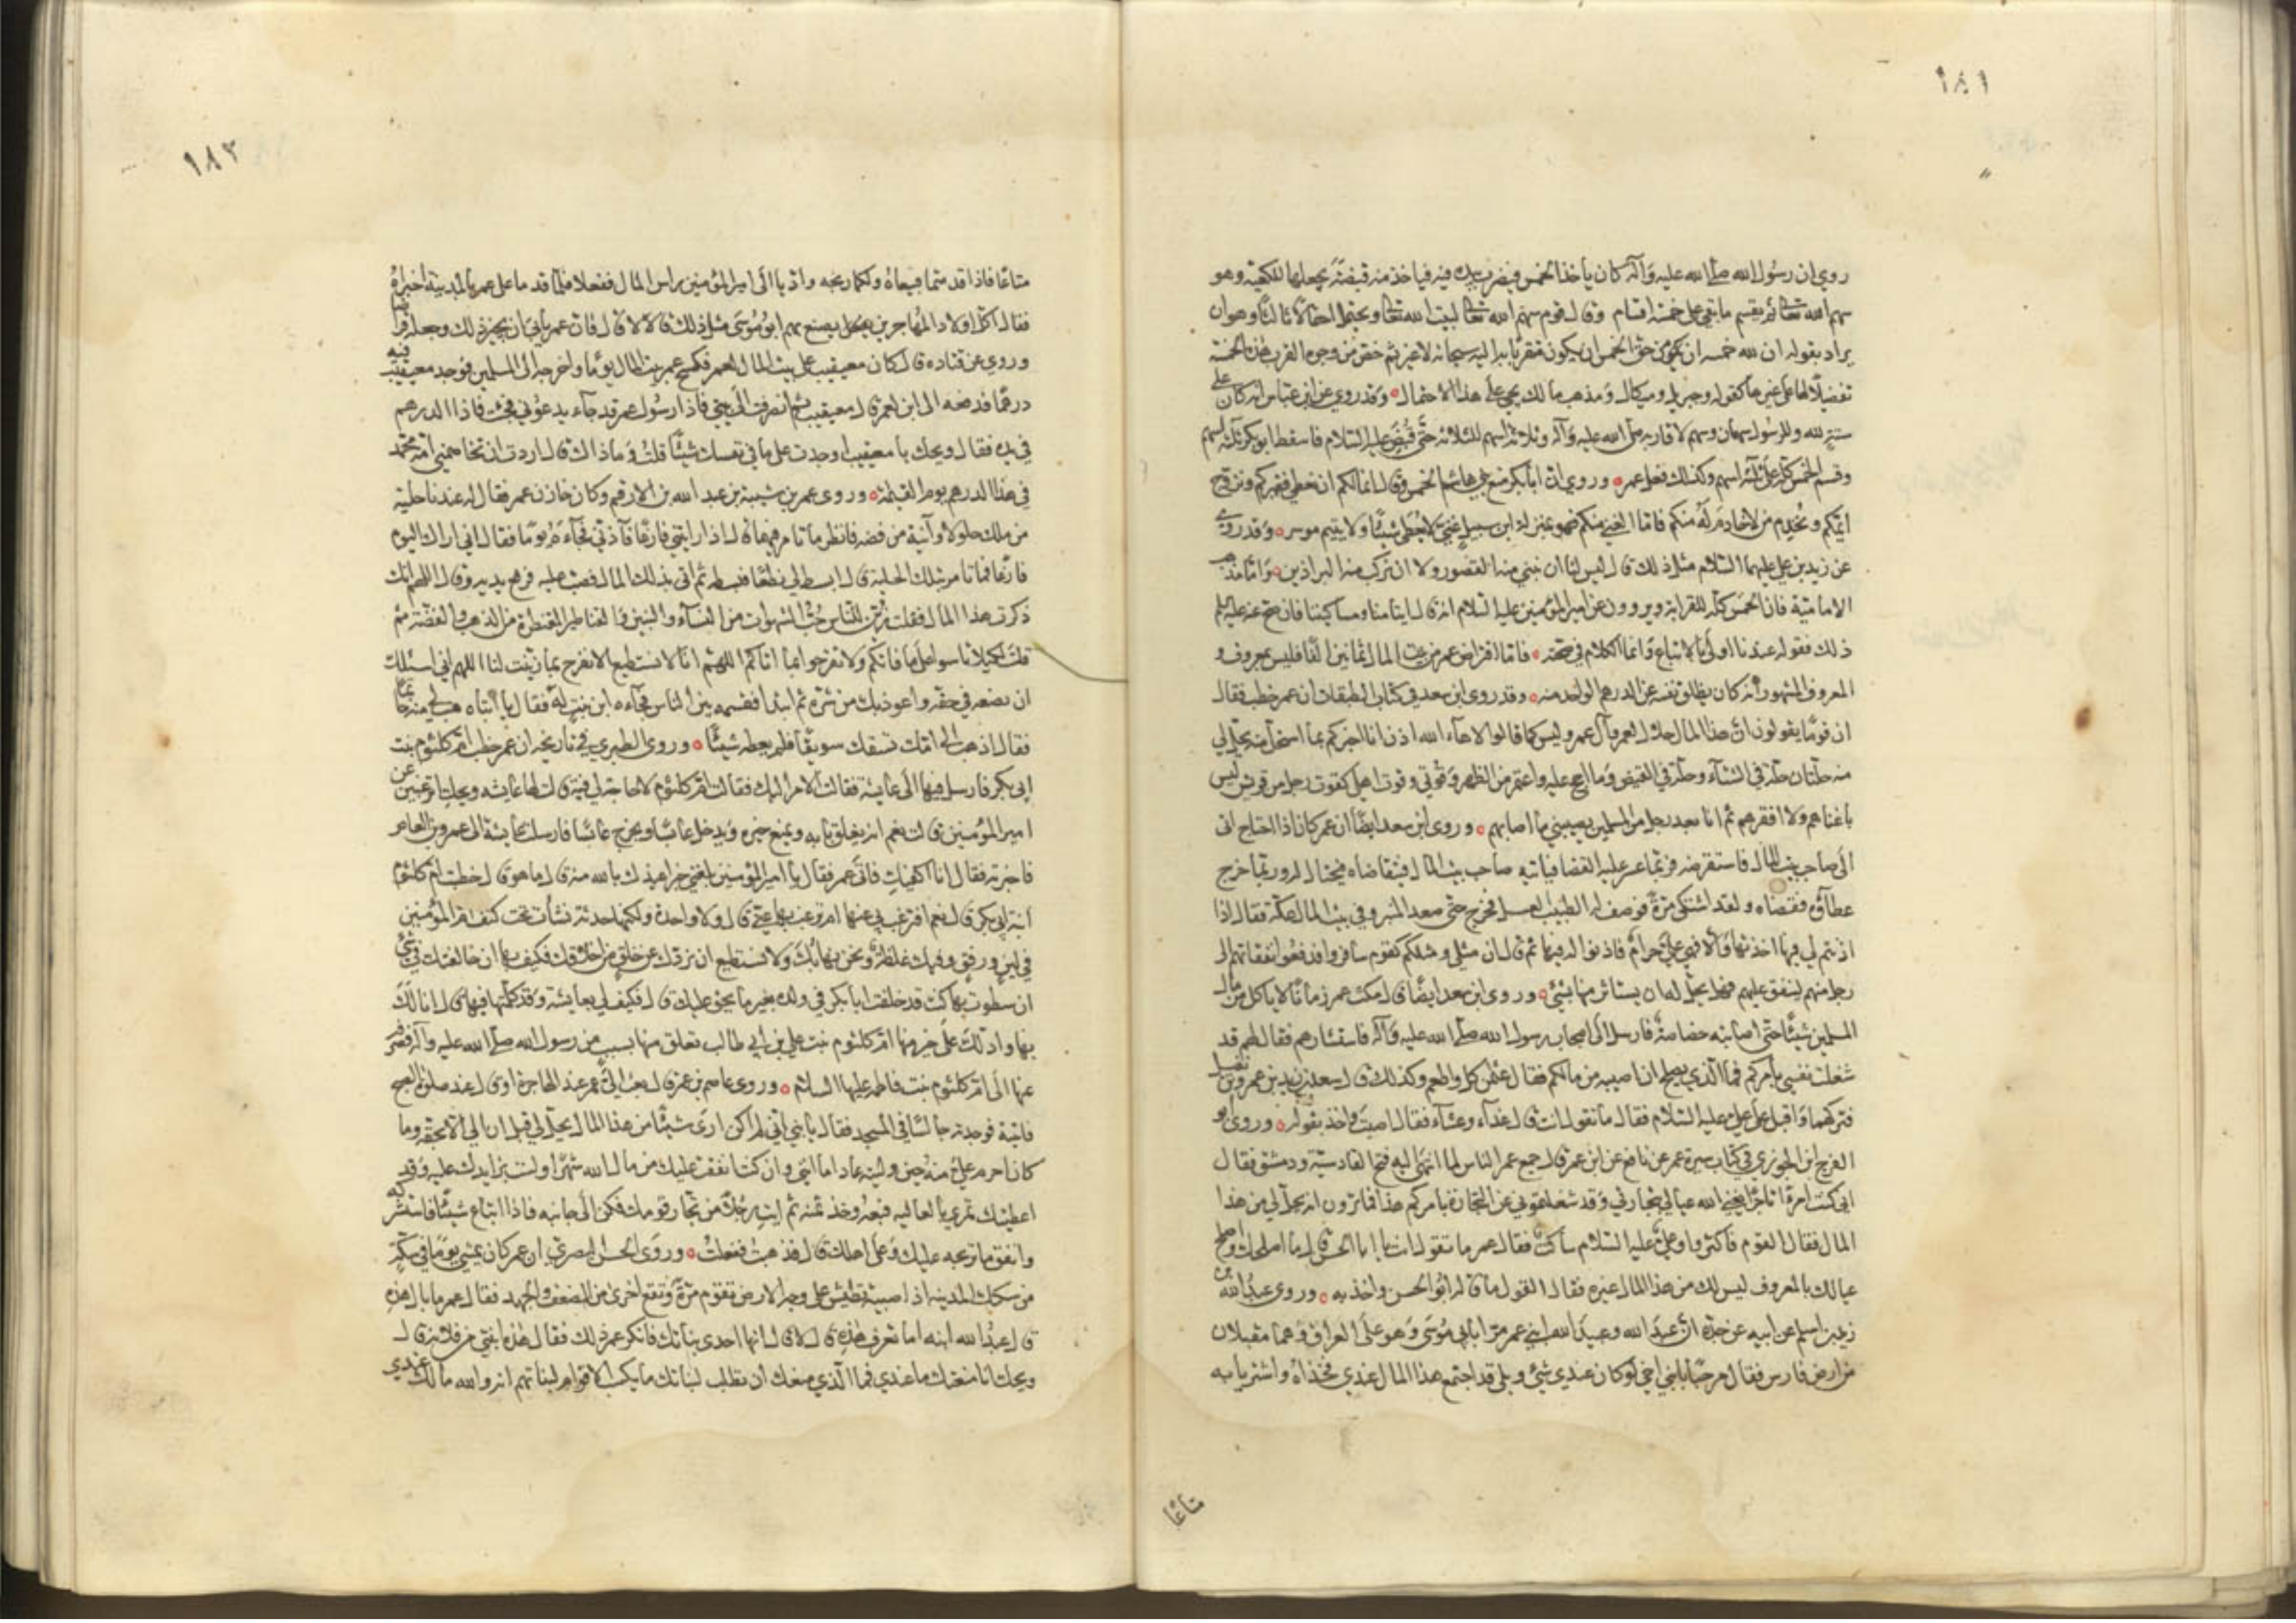 ١٨١
روي ان رسول الله صلى الله عليه وآله كان يأخذ الخمس فيضرب بيده فيه فيأخذ منه قبضة يجعلها للكعبة وهو
سهم الله تعالى ثم يقسم ما بقي على خمسة اقسام وقال قوم سهم الله تعالى لبيت الله تعالى ويحتمل احتمالا ثالثا وهو ان
يراد بقوله ان لله خمسه ان يكون من حق الخمس ان يكون متقربا به اليه سبحانه لا غير ثم خص من وجوه القرب هذه الخمسة
تفضيلا لها على غيرها كقوله وجبريل وميكال ومذهب مالك يجيء على هذا الاحتمال وقد روي عن ابن عباس انه كان على
ستة لله وللرسول سهمان وسهم لاقاربه صلى الله عليه وآله وثلاثة اسهم للثلاثة حتى قبض عليه السلام فاسقط ابو بكر ثلثة اسهم
وقسم الخمس كله على ثلثة اسهم وكذلك فعل عمر وروي ان أبا بكر منع بني هاشم الخمس وقال انما لكم ان نعطي فقيركم ونزوج
ايمكم ونخدم من لا خادم له منكم فاما الغني منكم فهو بمنزلة ابن سبيل غني لا يعطى شيئا ولا يتيم موسر وقد روي
عن زيد بن علي عليهما السلام مثل ذلك قال ليس لنا ان نبني منه القصور ولا ان نركب منه البراذين واما مذهب
الامامية فان الخمس كله للقرابة ويروون عن امير المؤمنين عليه السلام انه قال ايتامنا ومساكيننا فان صح عنه عليه السلم
ذلك فقوله عندنا اولى بالاتباع وانما الكلام في صحته فاما اقتراض عمر من بيت المال ثمانين الفا فليس بمعروف و
المعروف المشهور انه كان يظلف نفسه عن الدرهم الواحد منه وقد روى ابن سعد في كتاب الطبقات أن عمر خطب فقال
ان قوما يقولون ان هذا المال حلال لعمر وآل عمر وليس كما قالوا لاهاء الله اذن انا اخبركم بما استحل منه يحل لي
منه حلتان حلة في الشتاء وحلة في القيض وما احج عليه واعتمر من الظهر وقوتي وقوت اهلي كقوت رجل من قريش ليس
باغناهم ولا افقرهم ثم انا بعد رجل من المسلمين يصيبني ما اصابهم وروى ابن سعد ايضا ان عمر كان اذا احتاج اتى
الى صاحب بيت المال فاستقرضه فربما عسر عليه القضا فياتيه صاحب بيت المال فيتقاضاه فيحتال له وربما خرج
عطاؤه فقضاه ولقد اشتكى مرة فوصف له الطبيب العسل فخرج حتى صعد المنبر وفي بيت المال عكة فقال اذا
اذنتم لي فيها اخذتها والا فهي علي حرام فاذنوا له فيها ثم قال ان مثلي ومثلكم كقوم سافروا فدفعوا نفقاتهم الى
رجل منهم لينفق عليهم فهل يحل له ان يستأثر منها بشئ وروى ابن سعد ايضا قال مكث عمر زمانا لا ياكل من مال
المسلمين شيئا حتى اصابته خصاصة فارسل الى اصحاب رسول الله صلى الله عليه وآله فاستشارهم فقال لهم قد
شغلت نفسي بأمركم فما الذي يصلح ان اصيبه من مالكم فقال عثمن كل واطعم وكذلك قال سعد بن زيد بن عمرو بن نفيل
فتركهما واقبل على علي عليه السلام فقال ما تقول انت قال غداء وعشاء فقال اصبت واخذ بقوله وروى ابو
الفرج ابن الجوزي في كتاب سيرة عمر عن نافع عن ابن عمر قال جمع عمر الناس لما انتهى اليه فتح القادسية ودمشق فقال
اني كنت امرءا تاجرا يغني الله عيالي بتجارتي وقد شغلتموني عن التجارة بامركم هذا فما ترون انه يحل لي من هذا
المال فقال القوم فأكثروا وعلي عليه السلام ساكت فقال عمر ما تقول انت يا ابا الحسن قال ما اصلحك واصلح
عيالك بالمعروف ليس لك من هذا المال غيره فقال القول ما قال ابو الحسن واخذ به وروى عبد الله بن
زيد بن اسلم عن ابيه عن جده ان عبد الله وعبيد الله ابني عمر مرا بابي موسى وهو على العراق وهما مقبلان
من ارض فارس فقال مرحبا بابني اخي لو كان عندي شئ وبلى قد اجتمع هذا المال عندي فخذاه واشتريا به
متاعا
١٨٢
متاعا فاذا قدمتما فبيعاه ولكما ربحه واديا الى امير المؤمنين راس المال ففعلا فلما قدما على عمر بالمدينة اخبراه
فقال اكل اولاد المهاجرين يصنع بهم ابو موسى مثل ذلك قالا لا قال فان عمر يأبى ان يجيز ذلك وجعله قراضا
وروي عن قتاده قال كان معيقيب على بيت المال لعمر فكسح عمر بيت المال يوما واخرجه الى المسلمين فوجد معيقيب فيه
درهما فدفعه الى ابن لعمر قال معيقيب ثم انصرفت الى بيتي فاذا رسول عمر قد جاء يدعوني فجئت فاذا الدرهم
في يده فقال ويحك يا معيقيب اوجدت علي في نفسك شيئا قلت وما ذاك قال اردت ان تخاصمني امة محمد
في هذا الدرهم يوم القيمة وروى عمر بن شيبة بن عبد الله بن الارقم وكان خازن عمر فقال له عندنا حلية
من حلية جلولا وآنية من فضه فانظر ما تامر فيها قال اذا رايتني فارغا فآذني فجاءه يوما فقال اني اراك اليوم
فارغا فما تامر بتلك الحلية قال ابسط لي نطعا فبسطه ثم اتى بذلك المال فصب عليه فرفع يديه وقال اللهم انك
ذكرت هذا المال فقلت زين للناس حب الشهوات من النساء والبنين والقناطير المقنطرة من الذهب والفضة ثم
قلت لكيلا تاسوا على ما فاتكم ولا تفرحوا بما اتاكم اللهم انا لا نستطيع الا نفرح بما زينت لنا اللهم اني اسئلك
ان تضعه في حقه واعوذ بك من شره ثم ابتدا فقسمه بين الناس فجاءه ابن بنت له فقال يا ابتاه هب لي منه خاتما
فقال اذهب الى امك تسقك سويقا فلم يعطه شيئا وروى الطبري في تاريخه ان عمر خطب ام كلثوم بنت
ابي بكر فارسل فيها الى عايشة فقالت الامر اليك فقالت ام كلثوم لا حاجة لي فيه قالت لها عايشه ويحك اترغبين عن
امير المؤمنين قالت نعم انه يغلق بابه ويمنع خيره ويدخل عابسا ويخرج عابسا فارسلت عايشة الى عمرو بن العاص
فاخبرته فقال انا اكفيك فاتى عمر فقال يا امير المؤمنين بلغني خبر اعيذك بالله منه قال ما هو قال خطبت ام كلثوم
ابنة ابي بكر قال نعم افترغب بي عنها ام ترغب بها عني قال ولا واحدة ولكنها حدثة نشأت تحت كنف ام المؤمنين
في لين ورفق وفيك غلظة ونحن نهابك ولا نستطيع ان نردك عن خلق من اخلاقك فكيف بها ان خالفتك في شئ
ان سطوت بها كنت قد خلفت ابا بكر في ولده بغير ما يحق عليك قال فكيف لي بعايشة وقد كلمتها فيها قال انا لك
بها وادلك على خير منها ام كلثوم بنت علي بن أبي طالب تعلق منها بسبب من رسول الله صلى الله عليه وآله فصرفه
عنها الى ام كلثوم بنت فاطمه عليها السلام وروى عاصم بن عمر قال بعث الي عمر عند الهاجرة او قال عند صلوة الصبح
فاتيته فوجدته جالسا في المسجد فقال يا بني اني لم اكن ارى شيئا من هذا المال يحل لي قبل ان الي الا بحقه وما
كان احرم علي منه حين وليته عاد امانتي وان كنت انفقت عليك من مال الله شهرا ولست بزايدك عليه وقد
اعطيتك تمري بالعاليه فبعه وخذ ثمنه ثم ايت رجلا من تجار قومك فكن الى جانبه فاذا ابتاع شيئا فاستشركه
وانفق ما تربحه عليك وعلى اهلك قال فذهبت ففعلت وروى الحسن البصري ان عمر كان يمشي يوما في سكة
من سكك المدينه اذا صبية تطيش على وجه الارض تقوم مرة وتقع اخرى من الضعف والجهد فقال عمر ما بال هذه
قال عبد الله ابنه اما تعرف هذه قال لا قال انها احدى بناتك فانكر عمر ذلك فقال هذه ابنتي من فلانة قال
ويحك انا منعتك ما عندي فما الذي منعك ان تطلب لبناتك ما يكسب الاقوام لبناتهم انه والله مالك عندي